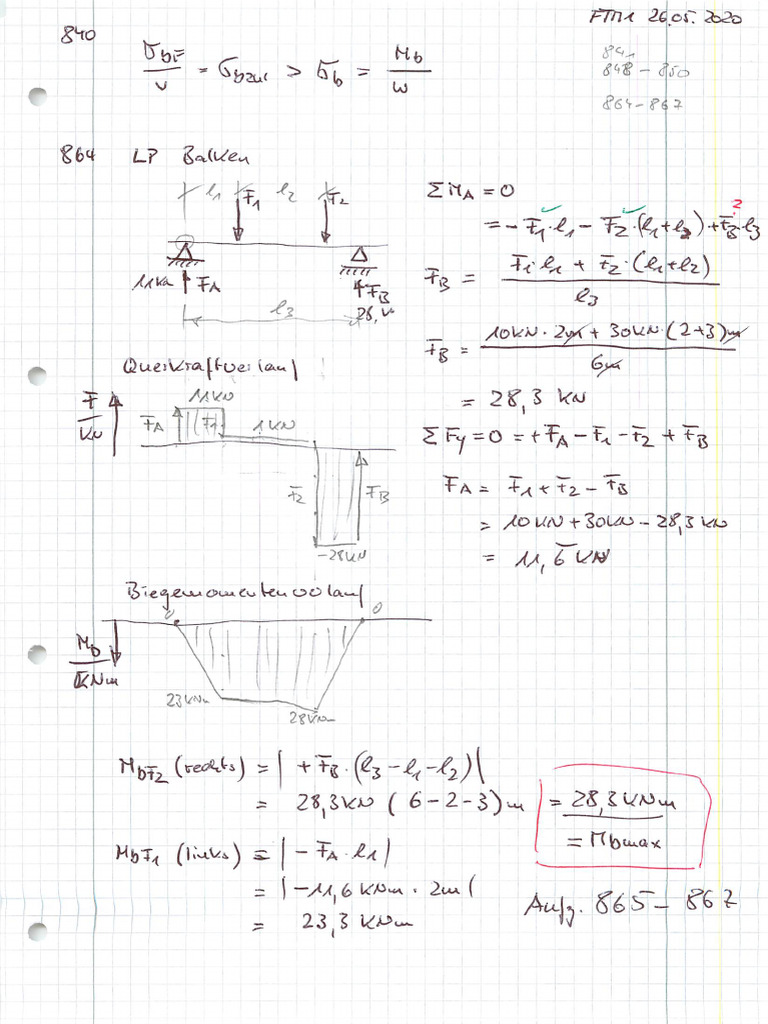 FTM1 26.05.2020
840
σbF/ν = σbzul > σb = Mb/W
841
848 – 850
864 – 867
864 LP Balken
l1 F1 l2 F2
11kN FA
FB
28, kN
l3
ΣMA = 0
= – F1·l1 – F2·(l1+l2) + FB·l3
?
FB = F1·l1 + F2·(l1+l2) / l3
FB = 10kN·2m + 30kN·(2+3)m / 6m
= 28,3 kN
ΣFy = 0 = +FA – F1 – F2 + FB
FA = F1 + F2 – FB
= 10kN + 30kN – 28,3 kN
= 11,6 kN
Querkraftverlauf
F/kN
11kN
FA F1 1kN
F2 FB
–28kN
Biegemomentenverlauf
0 0
Mb/kNm
23kNm
28kNm
MbF2 (rechts) = |+FB·(l3–l1–l2)|
= 28,3kN (6–2–3)m = 28,3kNm
= Mbmax
MbF1 (links) = |–FA·l1|
= |–11,6 kNm · 2m|
= 23,3 kNm
Aufg. 865 – 867